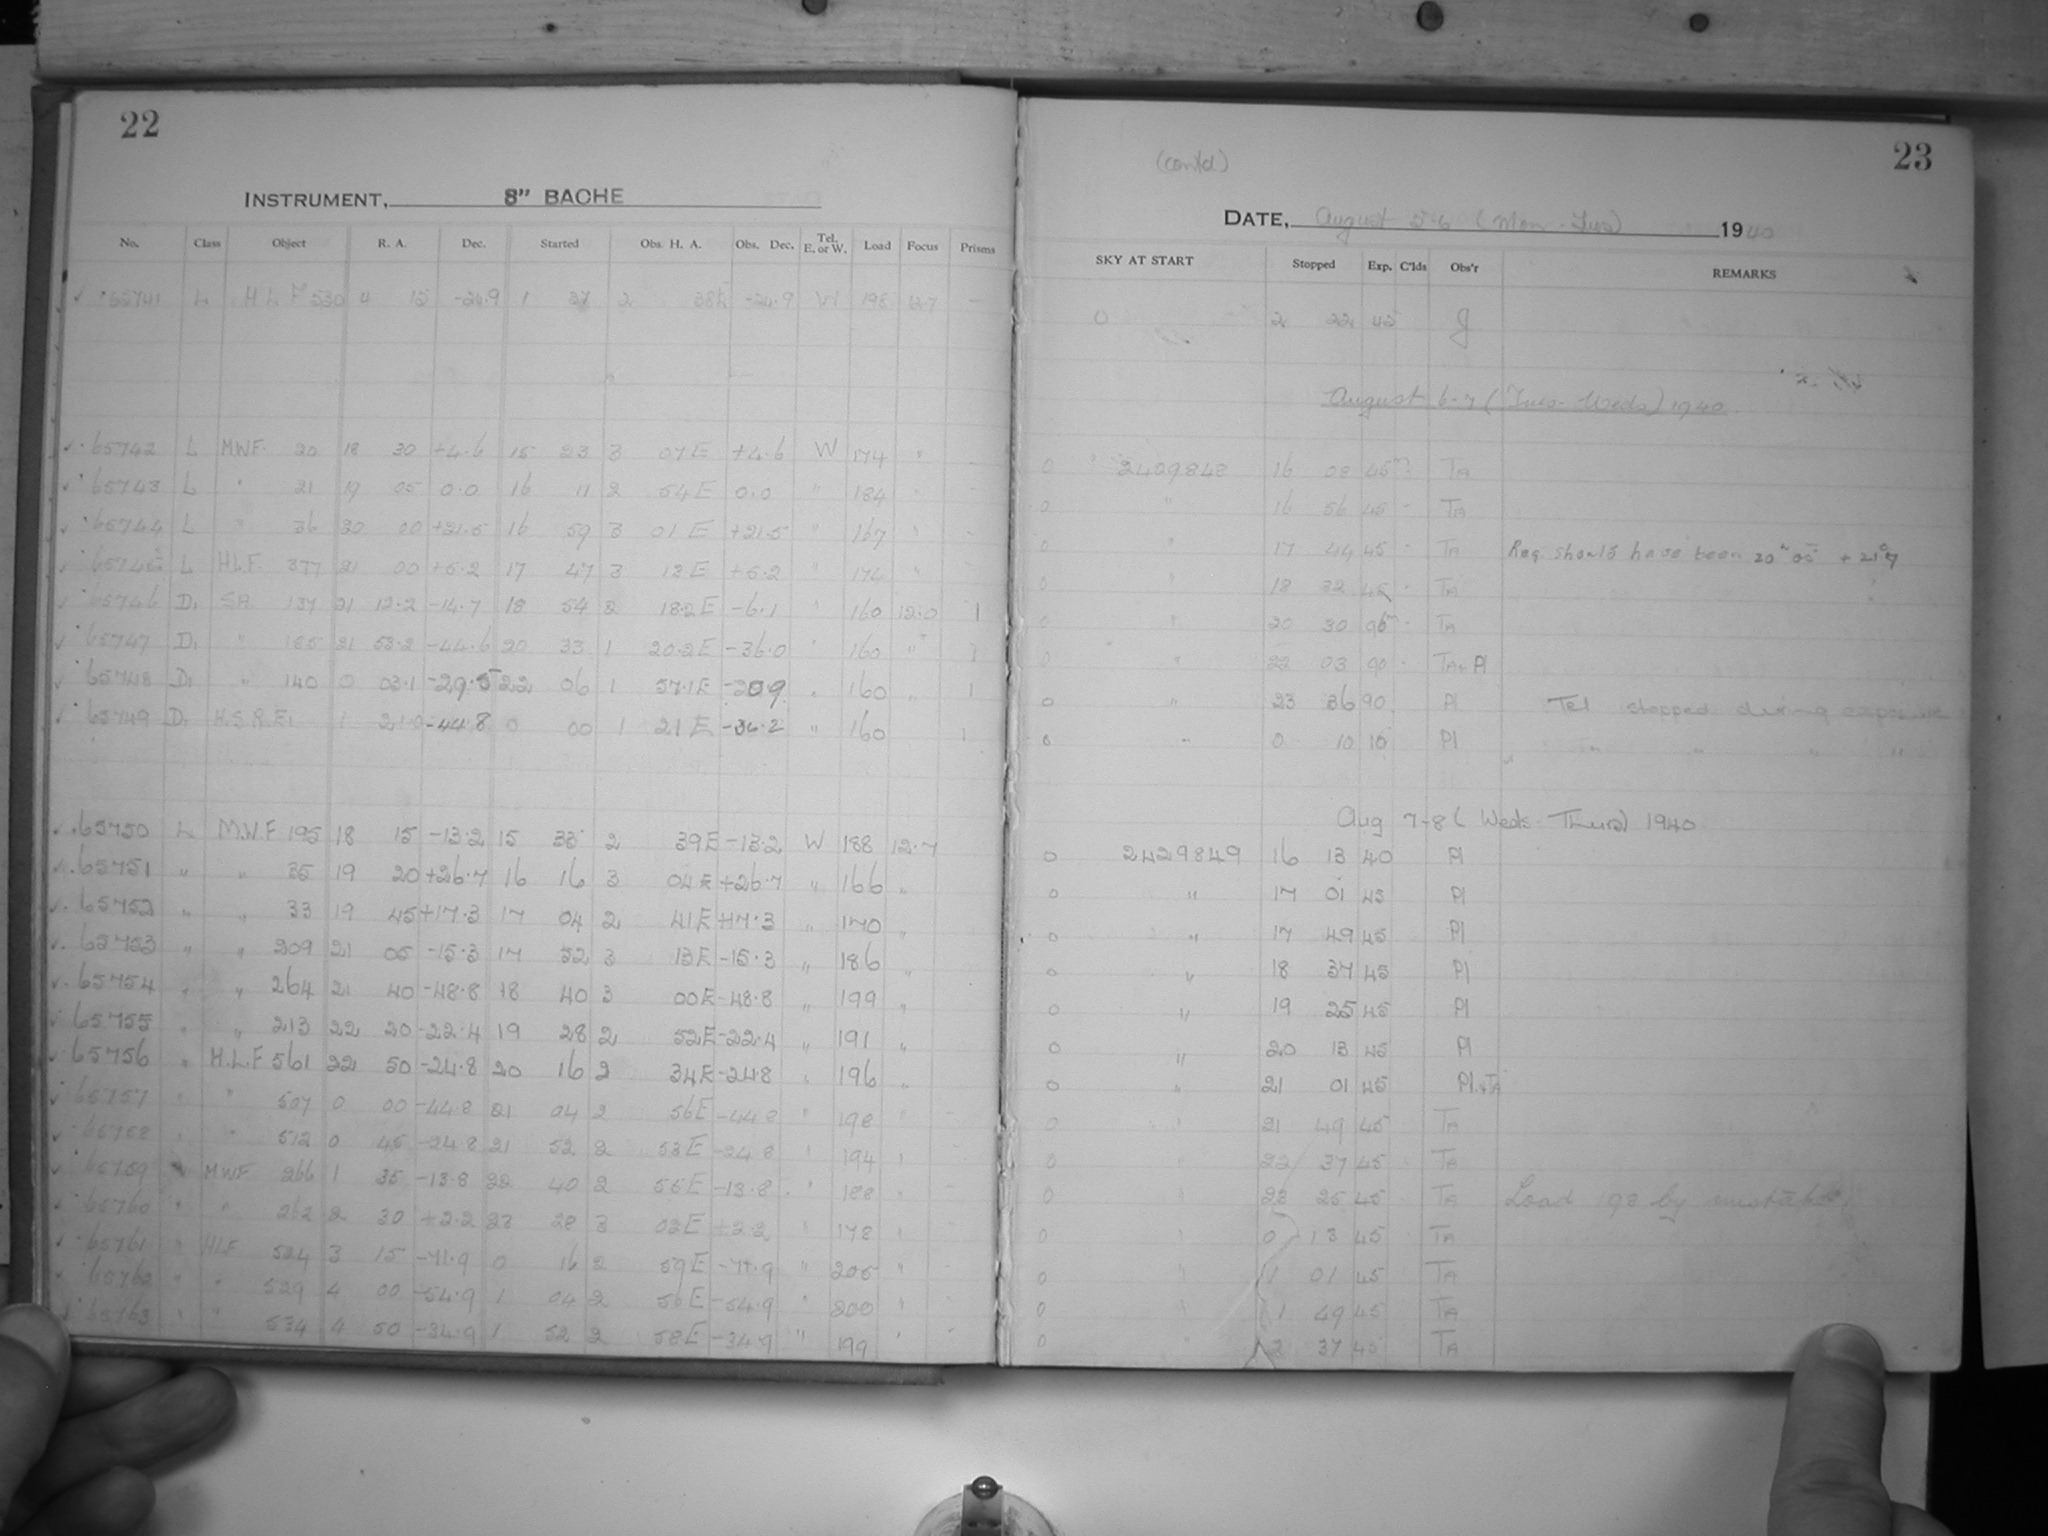 22
INSTRUMENT, 8" BACHE
No. Class Object R. A. Dec. Started Obs. H. A. Obs. Dec. Tel. E. or W. Load Focus Prisms
65741 L H L F 530 4 15 -24.9 1 37 2 38E -24.9 W 198 12.7 -
65742 L M.W.F. 20 18 30 +4.6 15 23 3 07E +4.6 W 174 "
65743 L " 21 19 05 0.0 16 11 2 54E 0.0 " 184
65744 L " 36 20 00 +21.5 16 59 3 01E +21.5 " 167 "
65745 L H.L.F. 377 21 00 +5.2 17 47 3 13E +5.2 " 174 "
65746 D. S.A. 137 21 12.2 -14.7 18 54 2 18.2E -6.1 " 160 12.0 1
65747 D. " 185 21 53.2 -44.6 20 33 1 20.2E -36.0 " 160 " 1
65748 D. " 140 0 03.1 -29.5 22 06 1 57.1E -20.9 " 160 " 1
65749 D. H.S.R.E. 1 21.0 -44.8 0 00 1 21E -36.2 " 160 1
65750 L M.W.F 195 18 15 -13.2 15 33 2 39E -13.2 W 188 12.7
65751 " " 35 19 20 +26.7 16 16 3 04E +26.7 " 166 "
65752 " " 33 19 45 +17.3 17 04 2 41E +17.3 " 170 "
65753 " " 209 21 05 -15.3 17 52 3 13E -15.3 " 186 "
65754 " " 264 21 40 -48.8 18 40 3 00E -48.8 " 199 "
65755 " " 213 22 20 -22.4 19 28 2 52E -22.4 " 191 "
65756 " H.L.F 561 22 50 -24.8 20 16 2 34E -24.8 " 196 "
65757 " " 507 0 00 -44.8 21 04 2 56E -44.8 " 198 "
65758 " " 512 0 45 -24.8 21 52 2 53E -24.8 " 194 "
65759 " MWF 266 1 35 -13.8 22 40 2 55E -13.8 " 188 "
65760 " " 262 2 30 +2.2 23 28 3 02E +2.2 " 178 "
65761 " HLF 524 3 15 -71.9 0 16 2 59E -71.9 " 205 "
65762 " " 529 4 00 -54.9 1 04 2 56E -54.9 " 200 "
65763 " " 534 4 50 -34.9 1 52 2 58E -34.9 " 199 "
23
(contd)
DATE, August 5-6 (Mon - Tues) 1940
SKY AT START Stopped Exp. C'lds Obs'r REMARKS
0 2 22 45 J
August 6-7 (Tues - Weds) 1940
0 2429848 16 08 45 TA
0 " 16 56 45 TA
0 " 17 44 45 TA Reg. should have been 20 05 +21.7
0 " 18 32 45 TA
0 " 20 30 96 TA
0 " 22 03 90 TA + Pl
0 " 23 36 90 Pl Tel stopped during exposure
0 " 0 10 10 Pl " " " "
Aug 7-8 (Weds - Thurs) 1940
0 2429849 16 13 40 Pl
0 " 17 01 45 Pl
0 " 17 49 45 Pl
0 " 18 37 45 Pl
0 " 19 25 45 Pl
0 " 20 13 45 Pl
0 " 21 01 45 Pl + TA
0 " 21 49 45 TA
0 " 22 37 45 TA
0 " 23 25 45 TA Load 198 by mistake
0 " 0 13 45 TA
0 " 1 01 45 TA
0 " 1 49 45 TA
0 " 2 37 45 TA